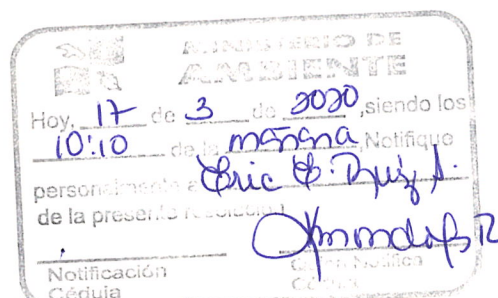 MINISTERIO DE
AMBIENTE
Hoy, 17 de 3 de 2020, siendo los
10:10 de la mañana, Notifique
personalmente a Eric E. Ruiz A.
de la presente resolución
Notificación
Quien Notifica
Cédula
Cédula